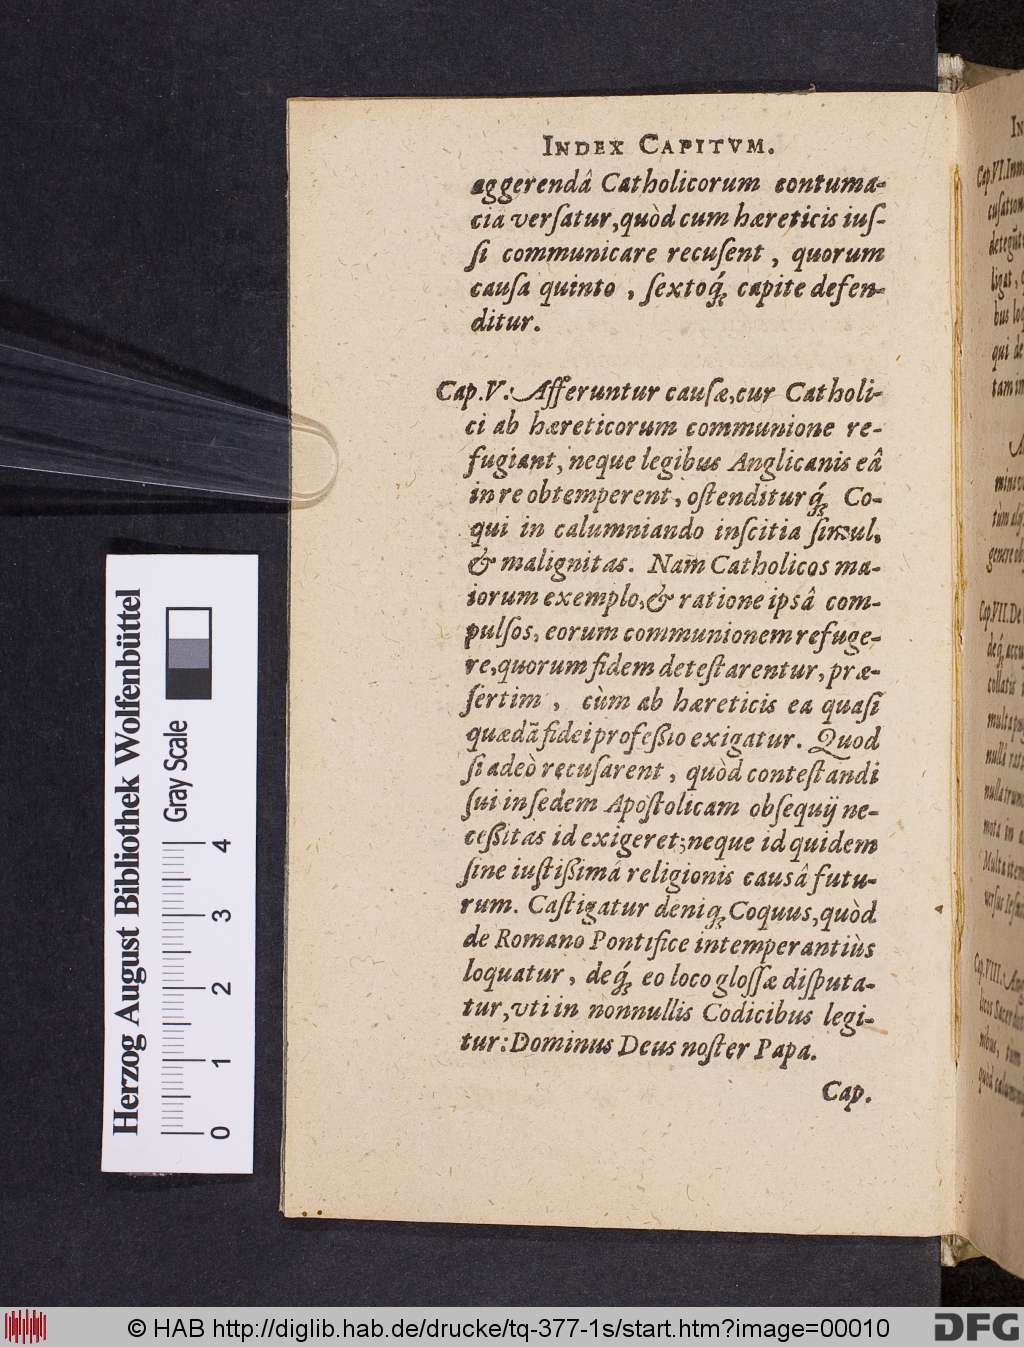 INDEX CAPITVM.
aggerendâ Catholicorum contuma-
cia versatur, quòd cum hæreticis ius-
si communicare recusent, quorum
causa quinto, sextoq́; capite defen-
ditur.
Cap. V.: Afferuntur causæ, cur Catholi-
ci ab hæreticorum communione re-
fugiant, neque legibus Anglicanis eâ
in re obtemperent, ostenditurq́; Co-
qui in calumniando inscitia simul,
& malignitas. Nam Catholicos ma-
iorum exemplo, & ratione ipsâ com-
pulsos, eorum communionem refuge-
re, quorum fidem detestarentur, præ-
sertim, cùm ab hæreticis ea quasi
quædã fidei professio exigatur. Quod
si adeò recusarent, quòd contestandi
sui in sedem Apostolicam obsequij ne-
cessitas id exigeret; neque id quidem
sine iustissimâ religionis causâ futu-
rum. Castigatur deniq; Coquus, quòd
de Romano Pontifice intemperantiùs
loquatur, deq́; eo loco glossæ disputa-
tur, vti in nonnullis Codicibus legi-
tur: Dominus Deus noster Papa.
Cap.
IN
Cap. VI.
cusation
ligat,
bus
qui de
tam in
genere
Cap. VII. De
deq́;
collatis
multa
nullâ
in
Multa item
Cap. VIII.:
Herzog August Bibliothek Wolfenbüttel
Gray Scale
0 1 2 3 4
© HAB http://diglib.hab.de/drucke/tq-377-1s/start.htm?image=00010
DFG